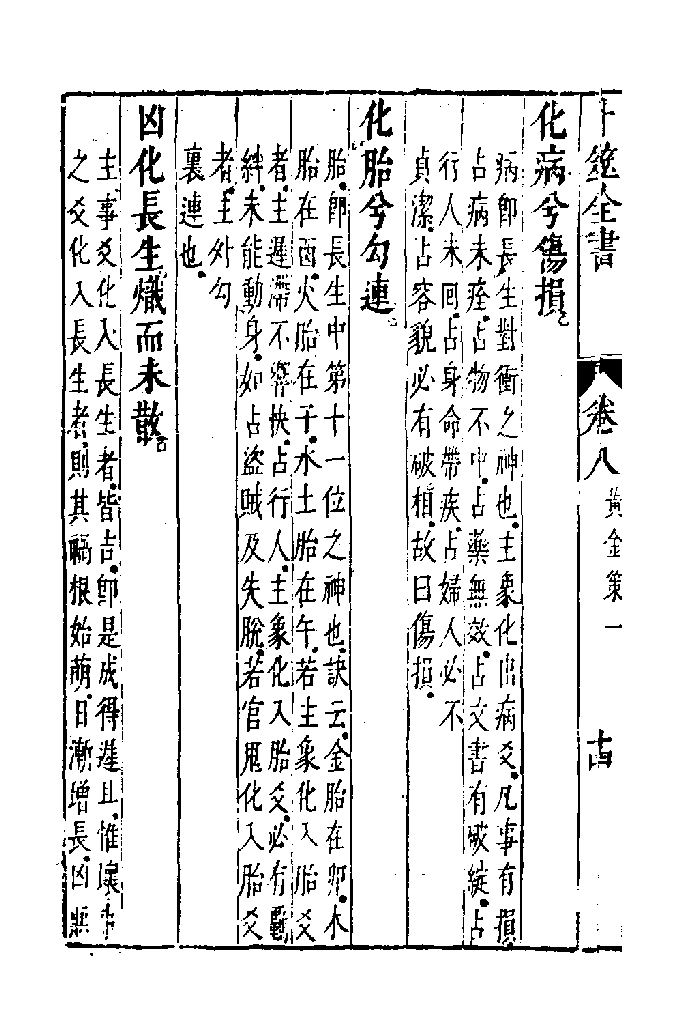 卜筮全書
卷八
黃金策一
十四
化病兮傷損
病卽長生對衝之神也主象化出病爻凡事有損
占病未痊占物不中占藥無效占文書有破綻占
行人未回占身命帶疾占婦人必不
貞潔占容貌必有破相故曰傷損
化胎兮勾連
胎卽長生中第十一位之神也訣云金胎在卯木
胎在酉火胎在子水土胎在午若主象化入胎爻
者主遲滯不響快占行人主象化入胎爻必有覊
絆未能動身如占盜賊及失脫若官鬼化入胎爻
者主外勾
裏連也
凶化長生熾而未散
主事爻化入長生者皆吉卽是成得遲且惟壞事
之爻化入長生者則其禍根始萌日漸增長凶災